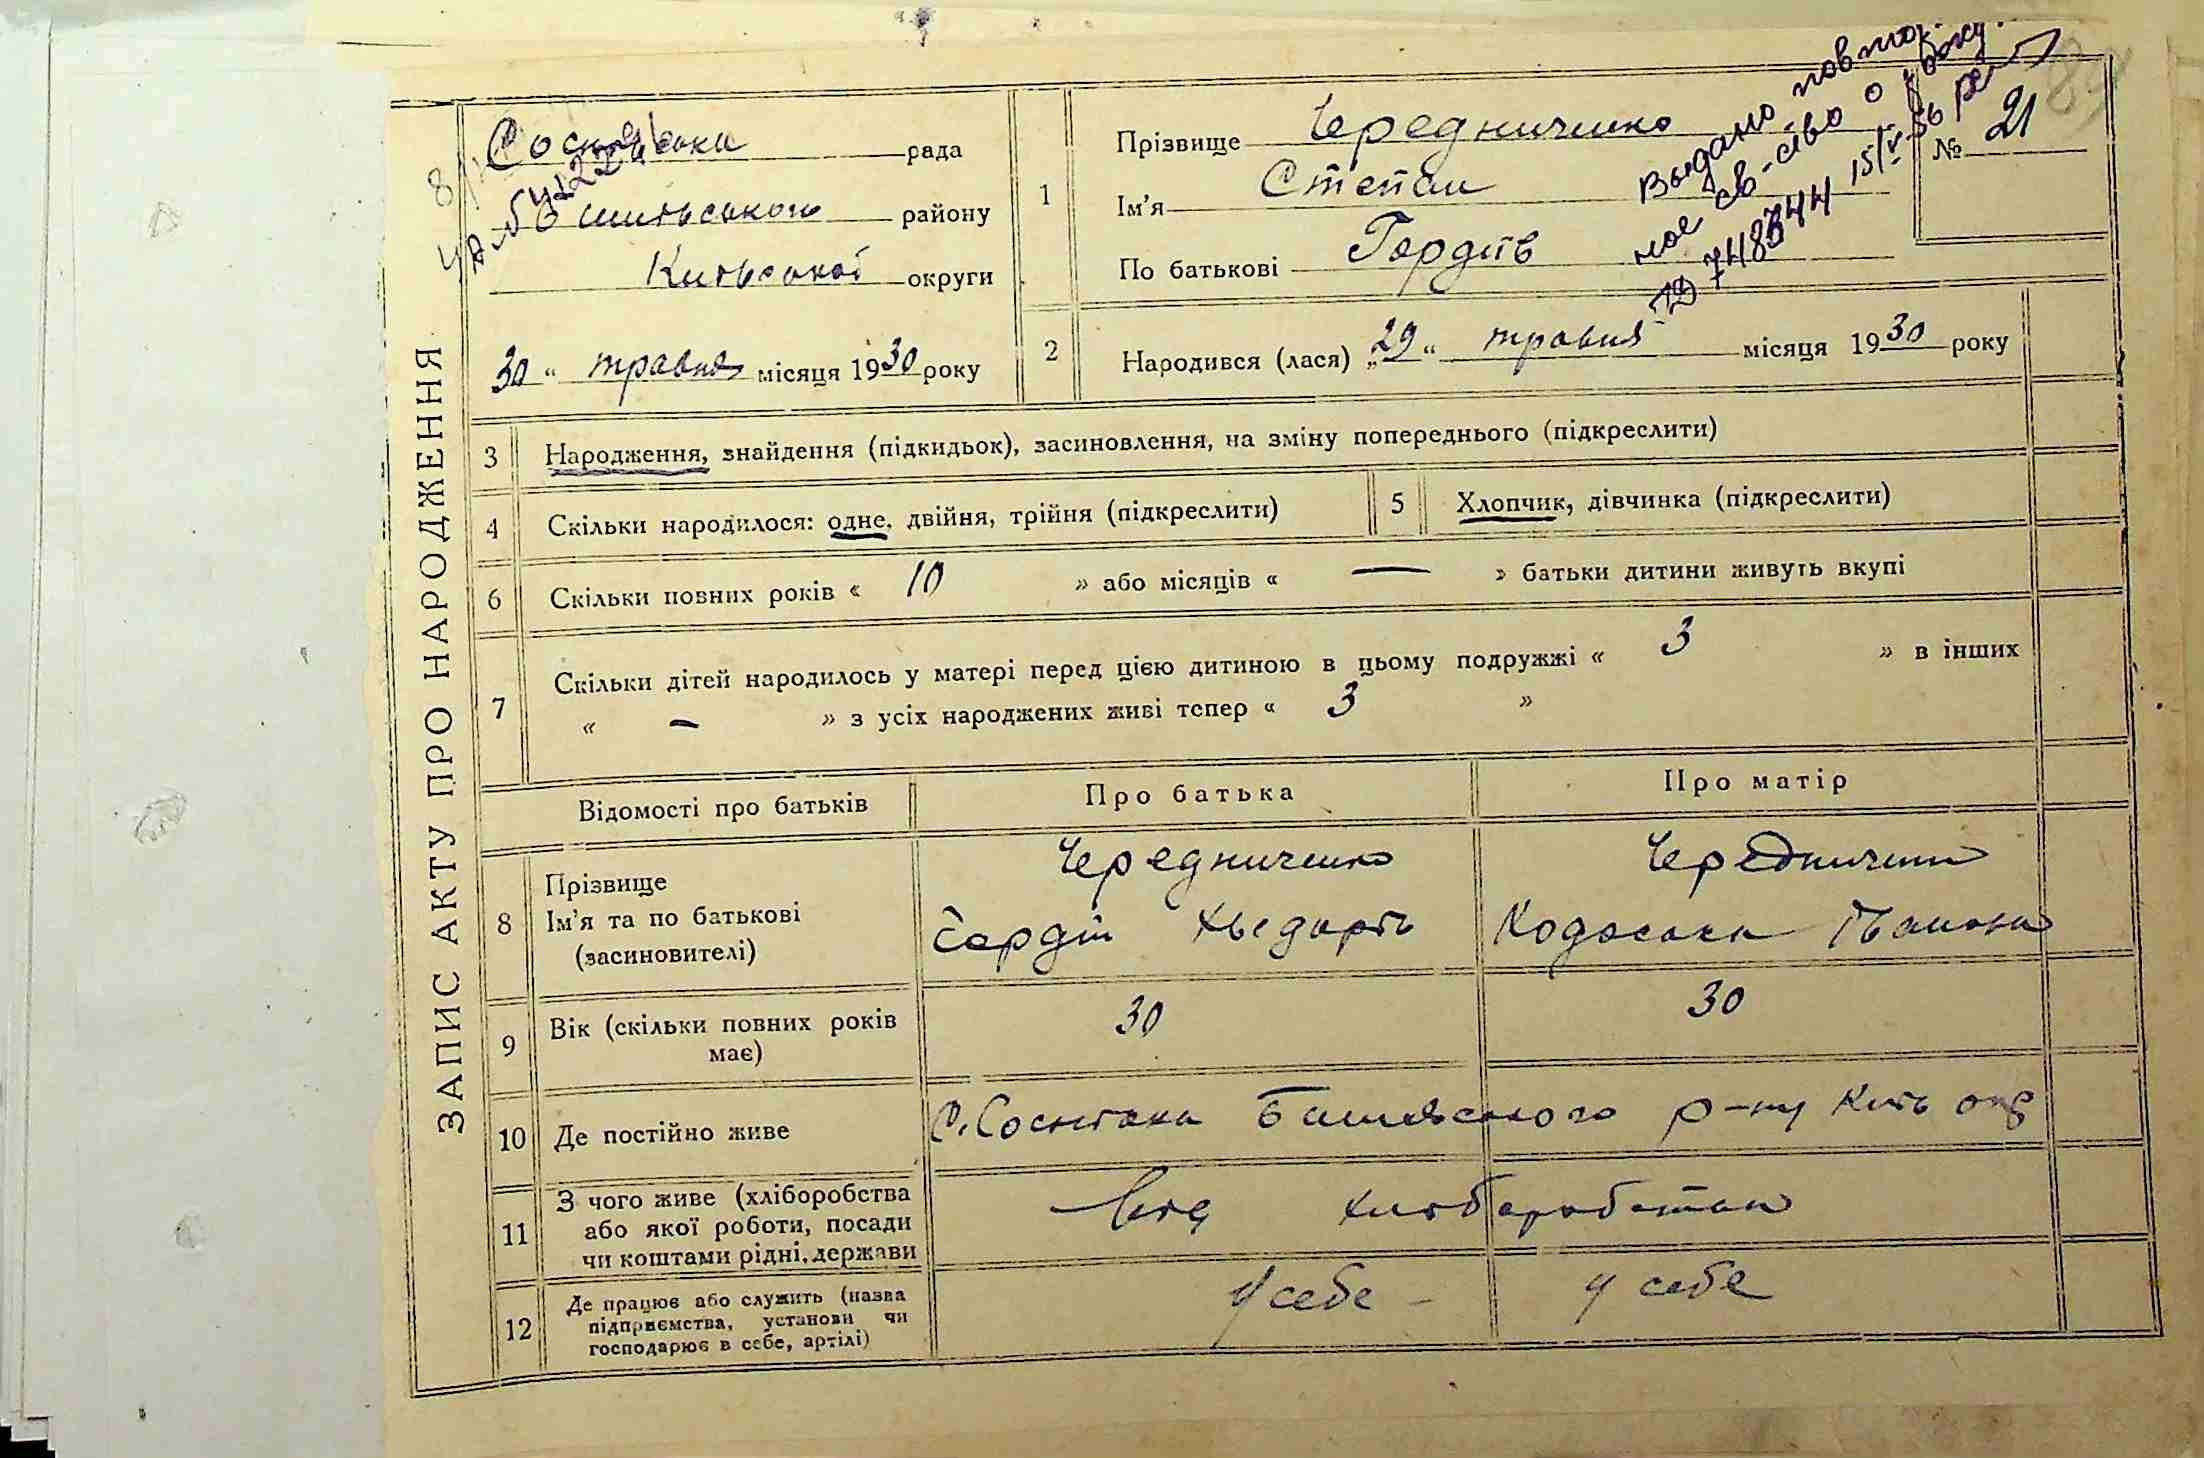 ЗАПИС АКТУ ПРО НАРОДЖЕННЯ
рада
району
Київської округи
30 “ травня місяця 1930 року
1
Прізвище Чередниченко
Ім’я Степан
По батькові Гордіїв
Выдано повтор.
ное св-ство о
748744 15/V-56
№ 21
2
Народився (лася) „29 “ травня місяця 1930 року
3 Народження, знайдення (підкидьок), засиновлення, на зміну попереднього (підкреслити)
4 Скільки народилося: одне, двійня, трійня (підкреслити) 5 Хлопчик, дівчинка (підкреслити)
6 Скільки повних років « 10 » або місяців « — » батьки дитини живуть вкупі
7 Скільки дітей народилось у матері перед цією дитиною в цьому подружжі « 3 » в інших
« — » з усіх народжених живі тепер « 3 »
Відомості про батьків Про батька Про матір
8 Прізвище
Ім’я та по батькові
(засиновителі)
Чередниченко
Гордій
Чередничен
9 Вік (скільки повних років
має)
30 30
10 Де постійно живе
р-ну Київ окр
11 З чого живе (хліборобства
або якої роботи, посади
чи коштами рідні, держави
Від
12 Де працює або служить (назва
підприємства, установи чи
господарює в себе, артілі)
У себе – У себе